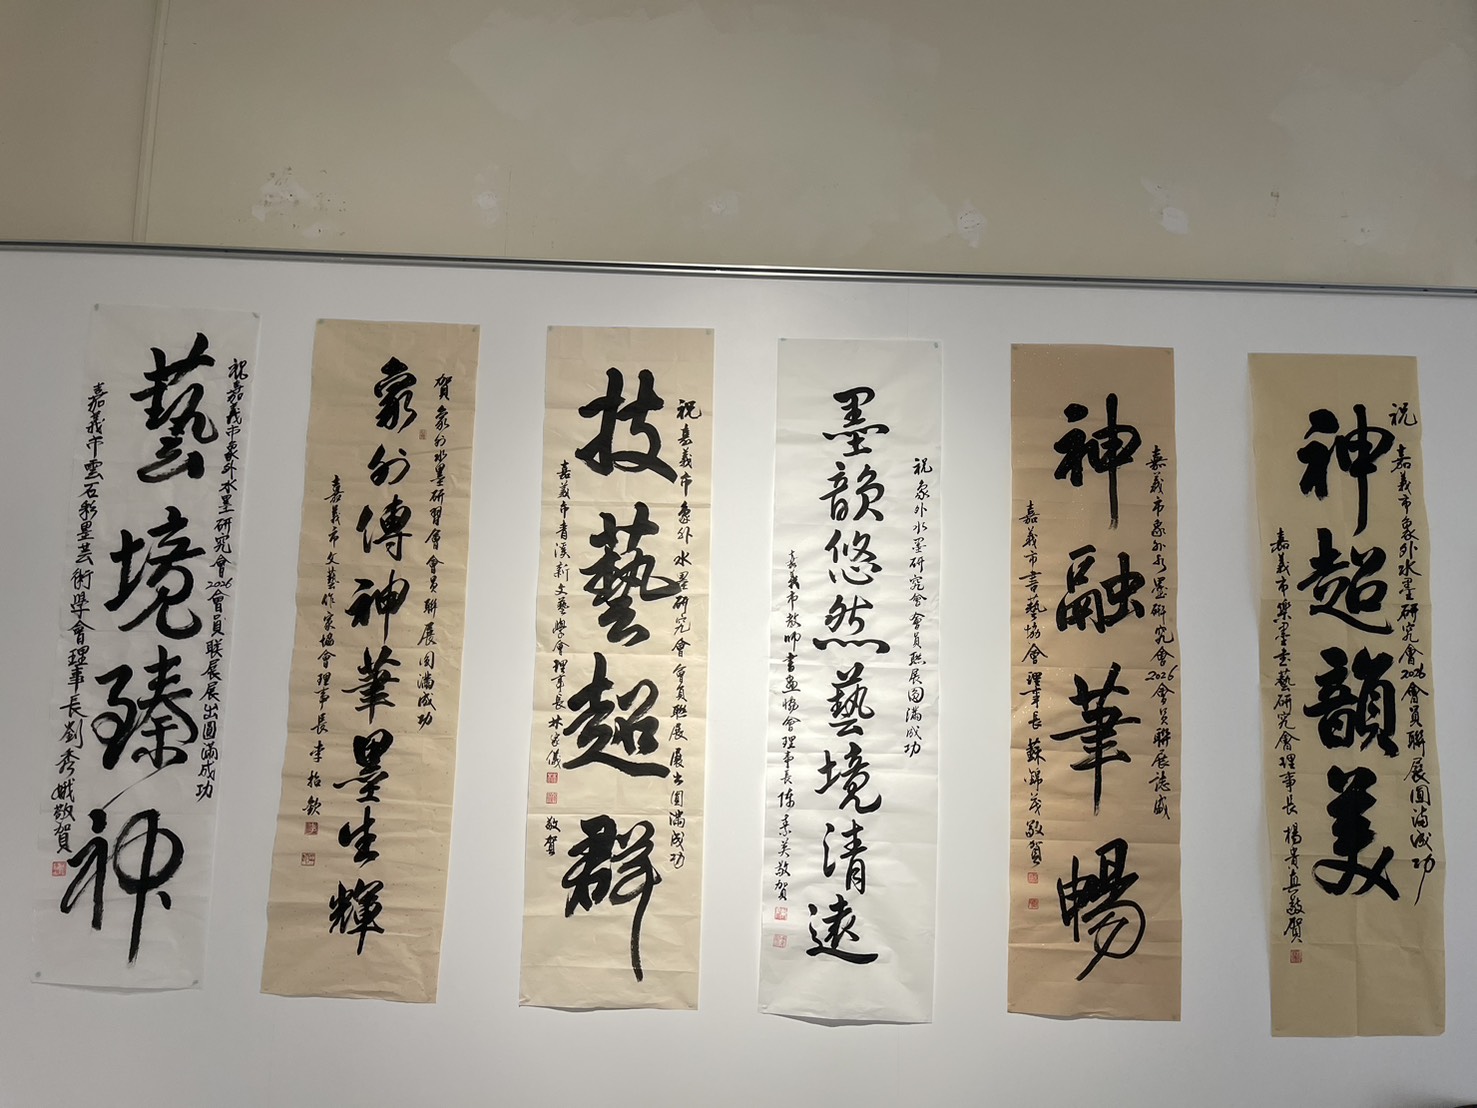 祝
嘉義市象外水墨研究會2026會員聯展圓滿成功
神超韻美
嘉義市樂墨書藝研究會理事長 楊貴真敬賀
嘉義市象外水墨研究會2026會員聯展誌盛
神融筆暢
嘉義市書藝協會理事長 蘇錦茂敬賀
祝象外水墨研究會會員联展圓滿成功
墨韻悠然藝境清遠
嘉義市教師書畫協會理事長陳素美敬賀
祝嘉義市象外水墨研究會會員聯展展出圓滿成功
技藝超群
嘉義市青溪新文藝學會理事長林家儀
敬賀
賀象外水墨研習會會員聯展圓滿成功
象外傳神筆墨生輝
嘉義市文藝作家協會理事長李
祝嘉義市象外水墨研究會2026會員联展展出圓滿成功
藝境臻神
嘉義市雲石彩墨芸術學會理事長劉秀娥敬賀